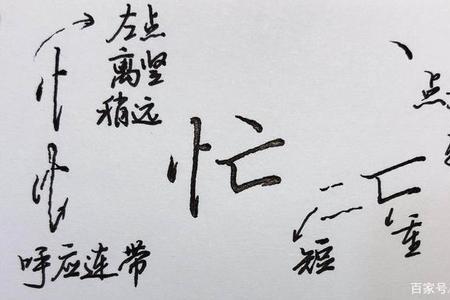 左点
离竖
稍远
忙
呼应连带
点
短
重
百家号